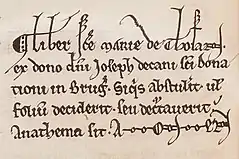 Liber sce marie de
ex dono dni Joseph decani sci dona
tiani in Brug. Siqs abstulit ul
foliu deciderit. seu detraxerit.
Anathema sit. A